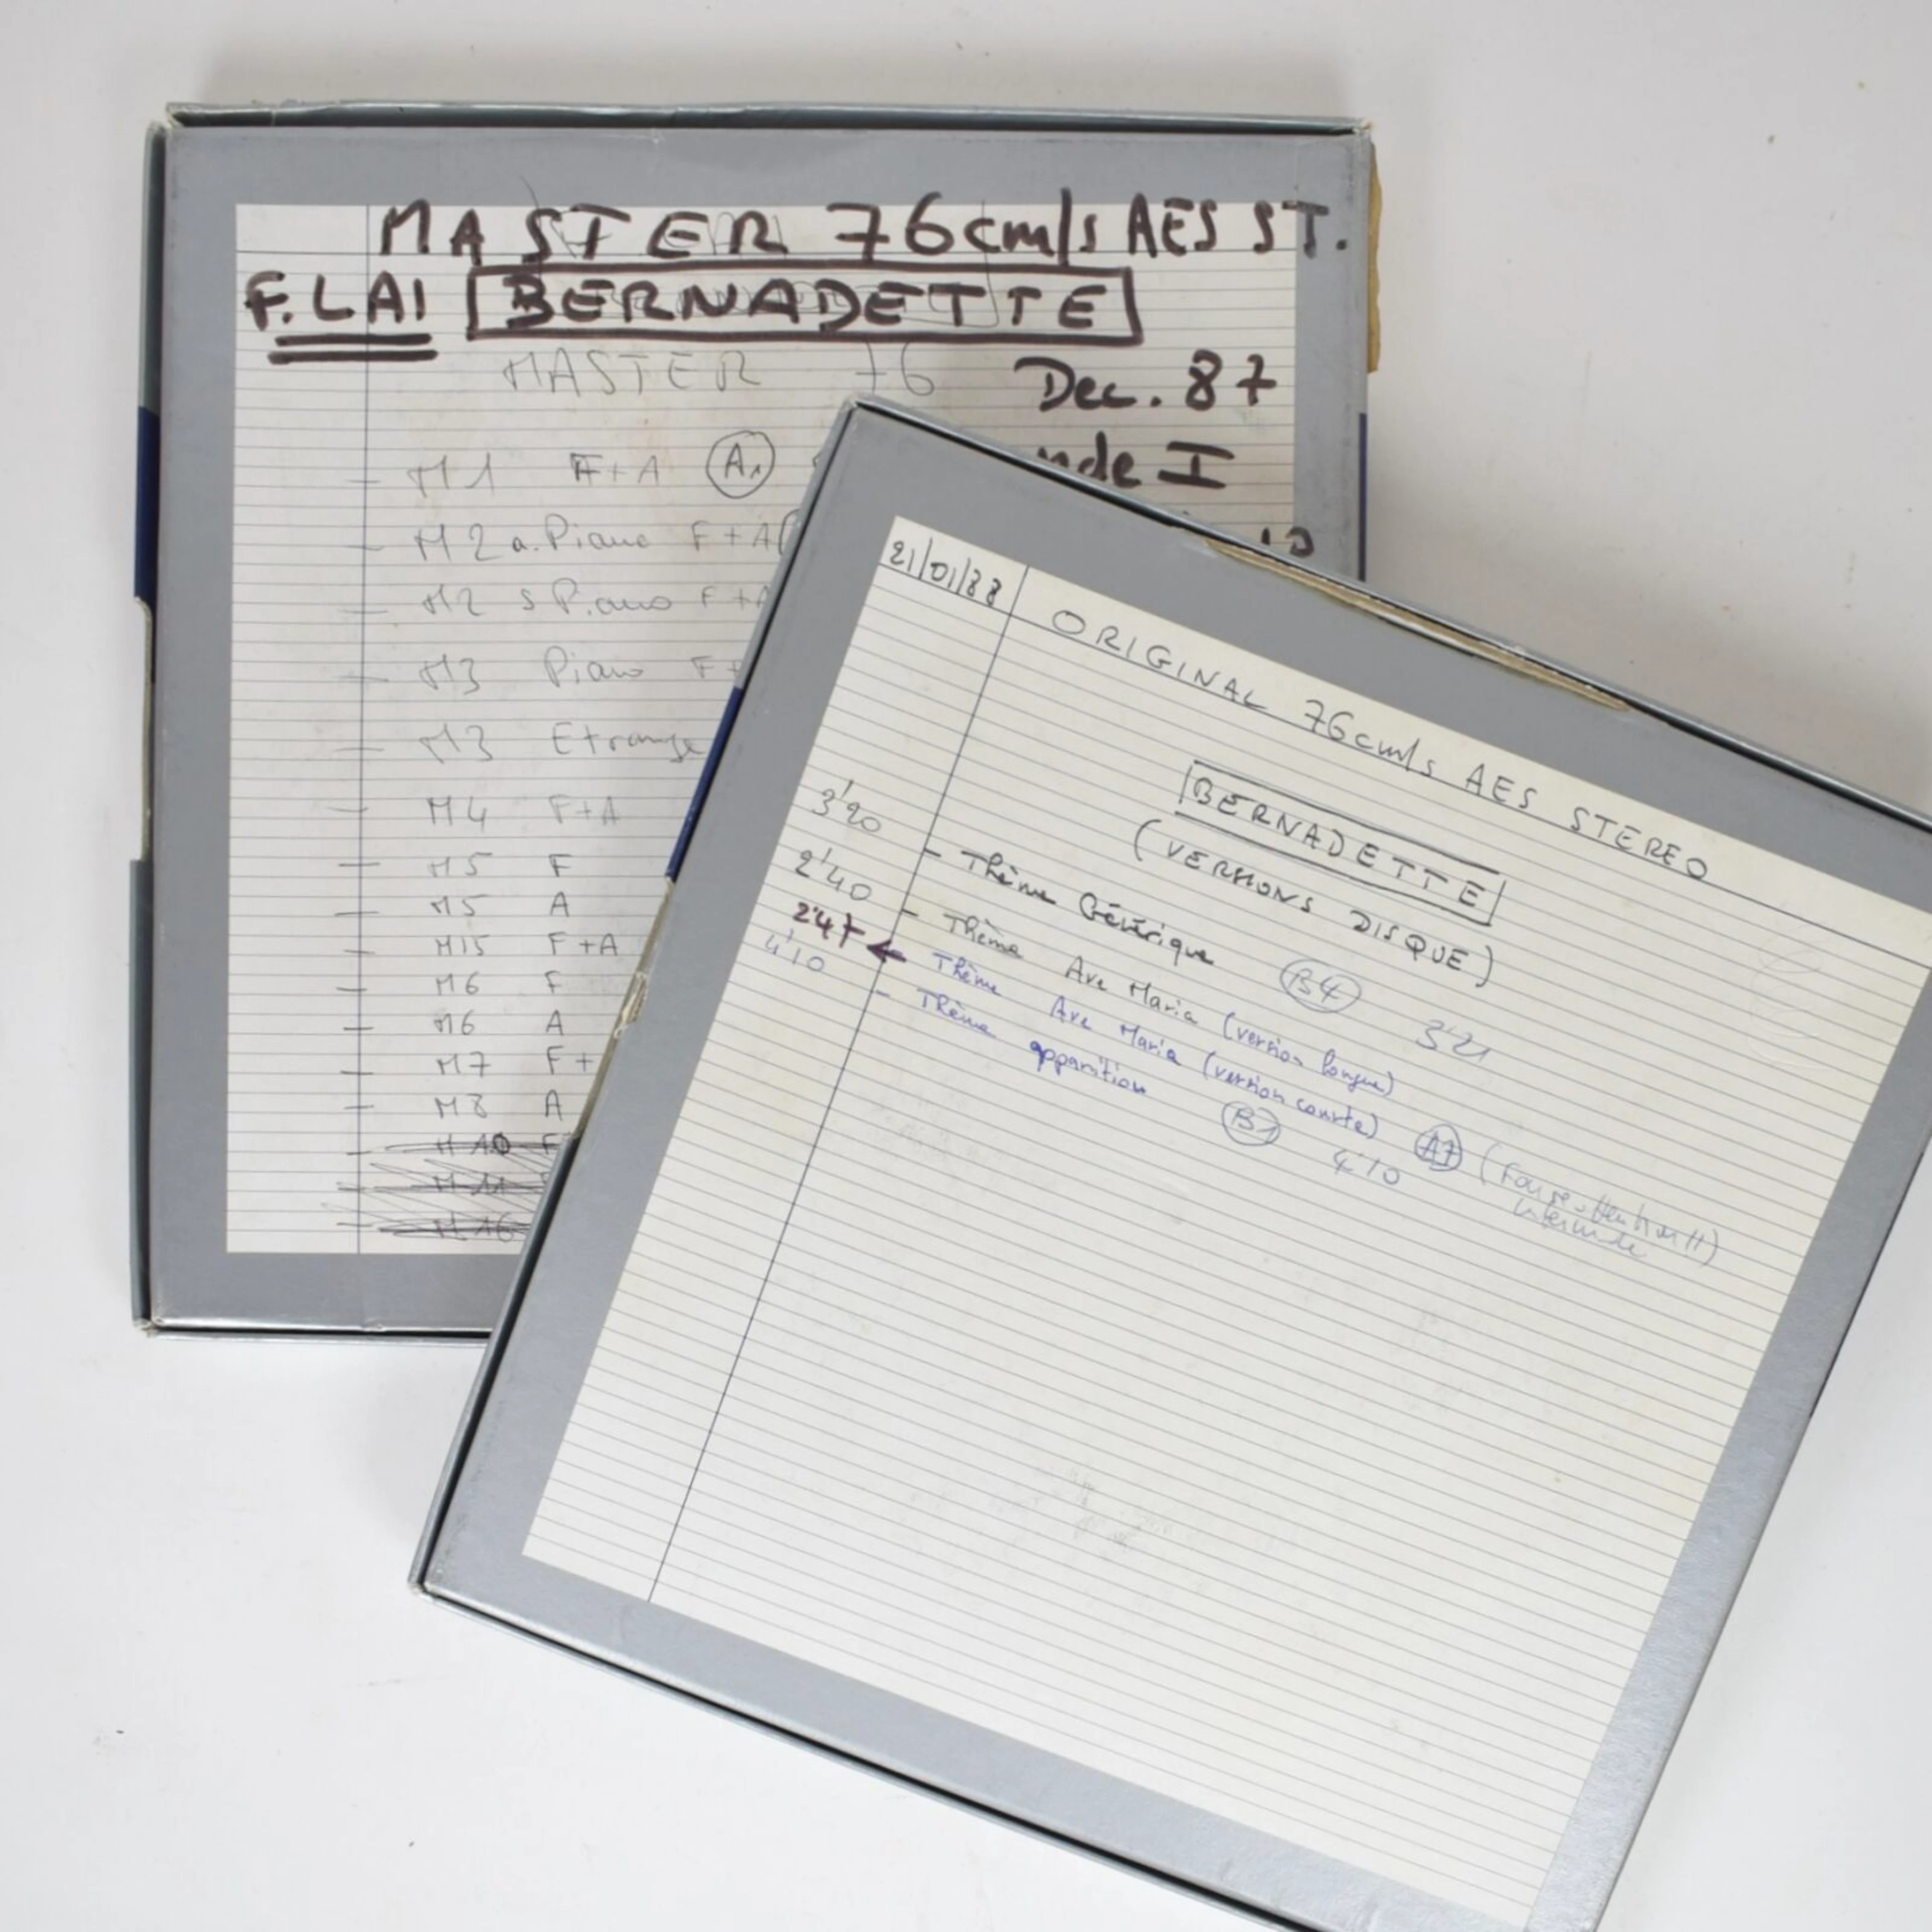 MASTER 76cm/s AES ST.
F.LAI BERNADETTE
MASTER 76
Dec. 87
I
M1 F+A A1
M2 a. Piano F+A
M2 s Piano F+A
M3 Piano F+
M3 Etrange
M4 F+A
M5 F
M5 A
M15 F+A
M6 F
M6 A
M7 F+
M8 A
M10 F
M11
M16
21/01/88 ORIGINAL 76cm/s AES STEREO
BERNADETTE
(VERSIONS DISQUE)
3'20 - Thème Générique B4 3'21
2'40 - Thème Ave Maria (version longue)
2'47 ← Thème Ave Maria (version courte) A7 (
4'10 - Thème apparition B1 4'10